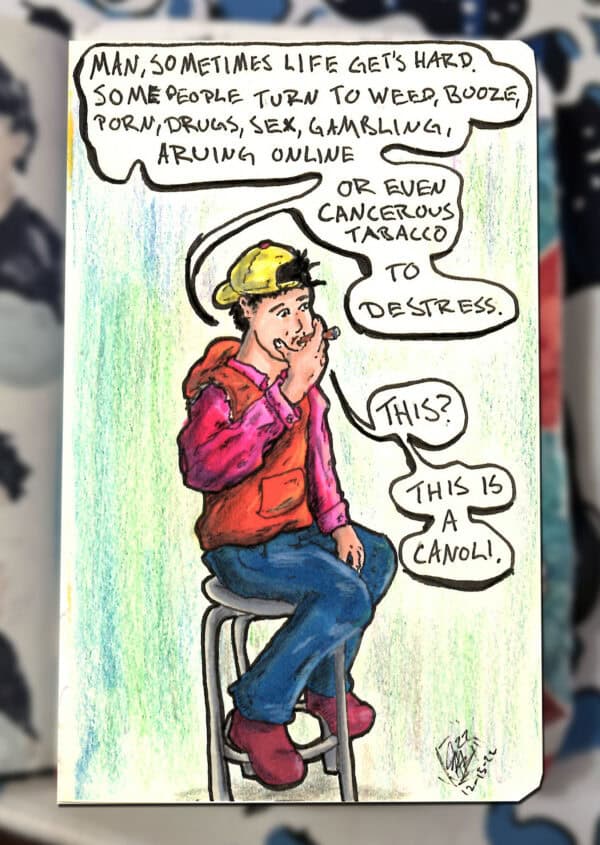 MAN, SOMETIMES LIFE GET'S HARD.
SOME PEOPLE TURN TO WEED, BOOZE,
PORN, DRUGS, SEX, GAMBLING,
ARUING ONLINE
OR EVEN
CANCEROUS
TABACCO
TO
DESTRESS.
THIS?
THIS IS
A
CANOLI.
22
12-15-22